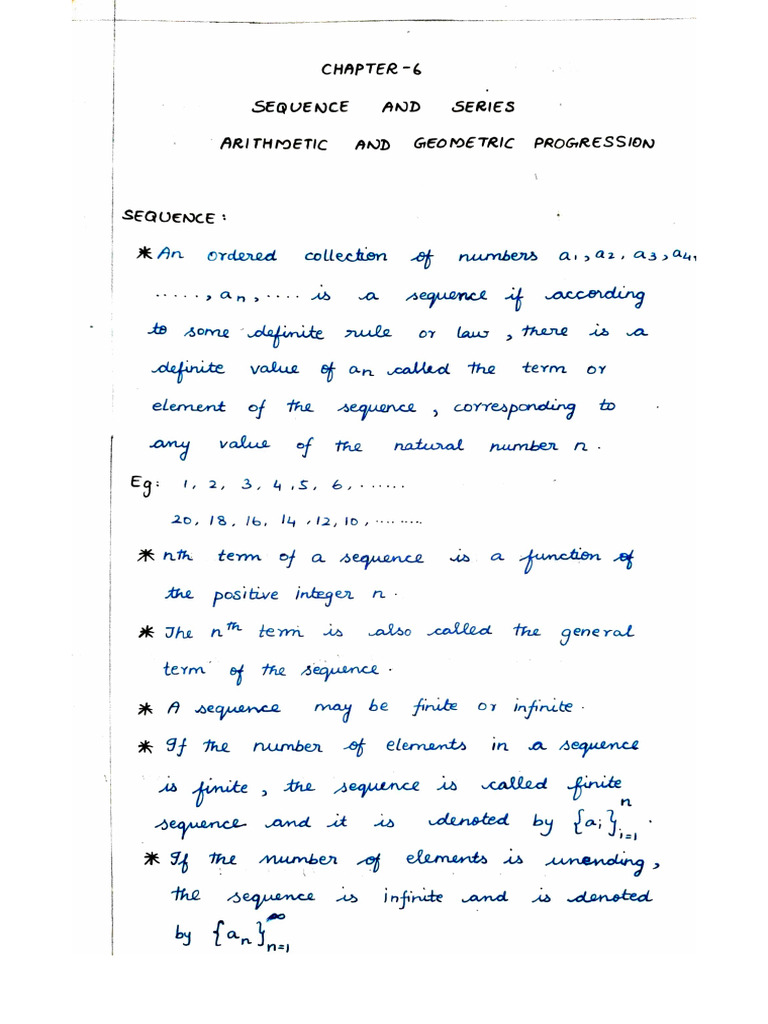 CHAPTER-6
SEQUENCE AND SERIES
ARITHMETIC AND GEOMETRIC PROGRESSION
SEQUENCE:
* An ordered collection of numbers a₁, a₂, a₃, a₄,
....., aₙ, .... is a sequence if according
to some definite rule or law, there is a
definite value of aₙ called the term or
element of the sequence, corresponding to
any value of the natural number n.
Eg: 1, 2, 3, 4, 5, 6, ......
20, 18, 16, 14, 12, 10, .........
* nth term of a sequence is a function of
the positive integer n.
* The nᵗʰ term is also called the general
term of the sequence.
* A sequence may be finite or infinite.
* If the number of elements in a sequence
is finite, the sequence is called finite
sequence and it is denoted by {aᵢ}ⁿᵢ₌₁.
* If the number of elements is unending,
the sequence is infinite and is denoted
by {aₙ}^∞ₙ₌₁